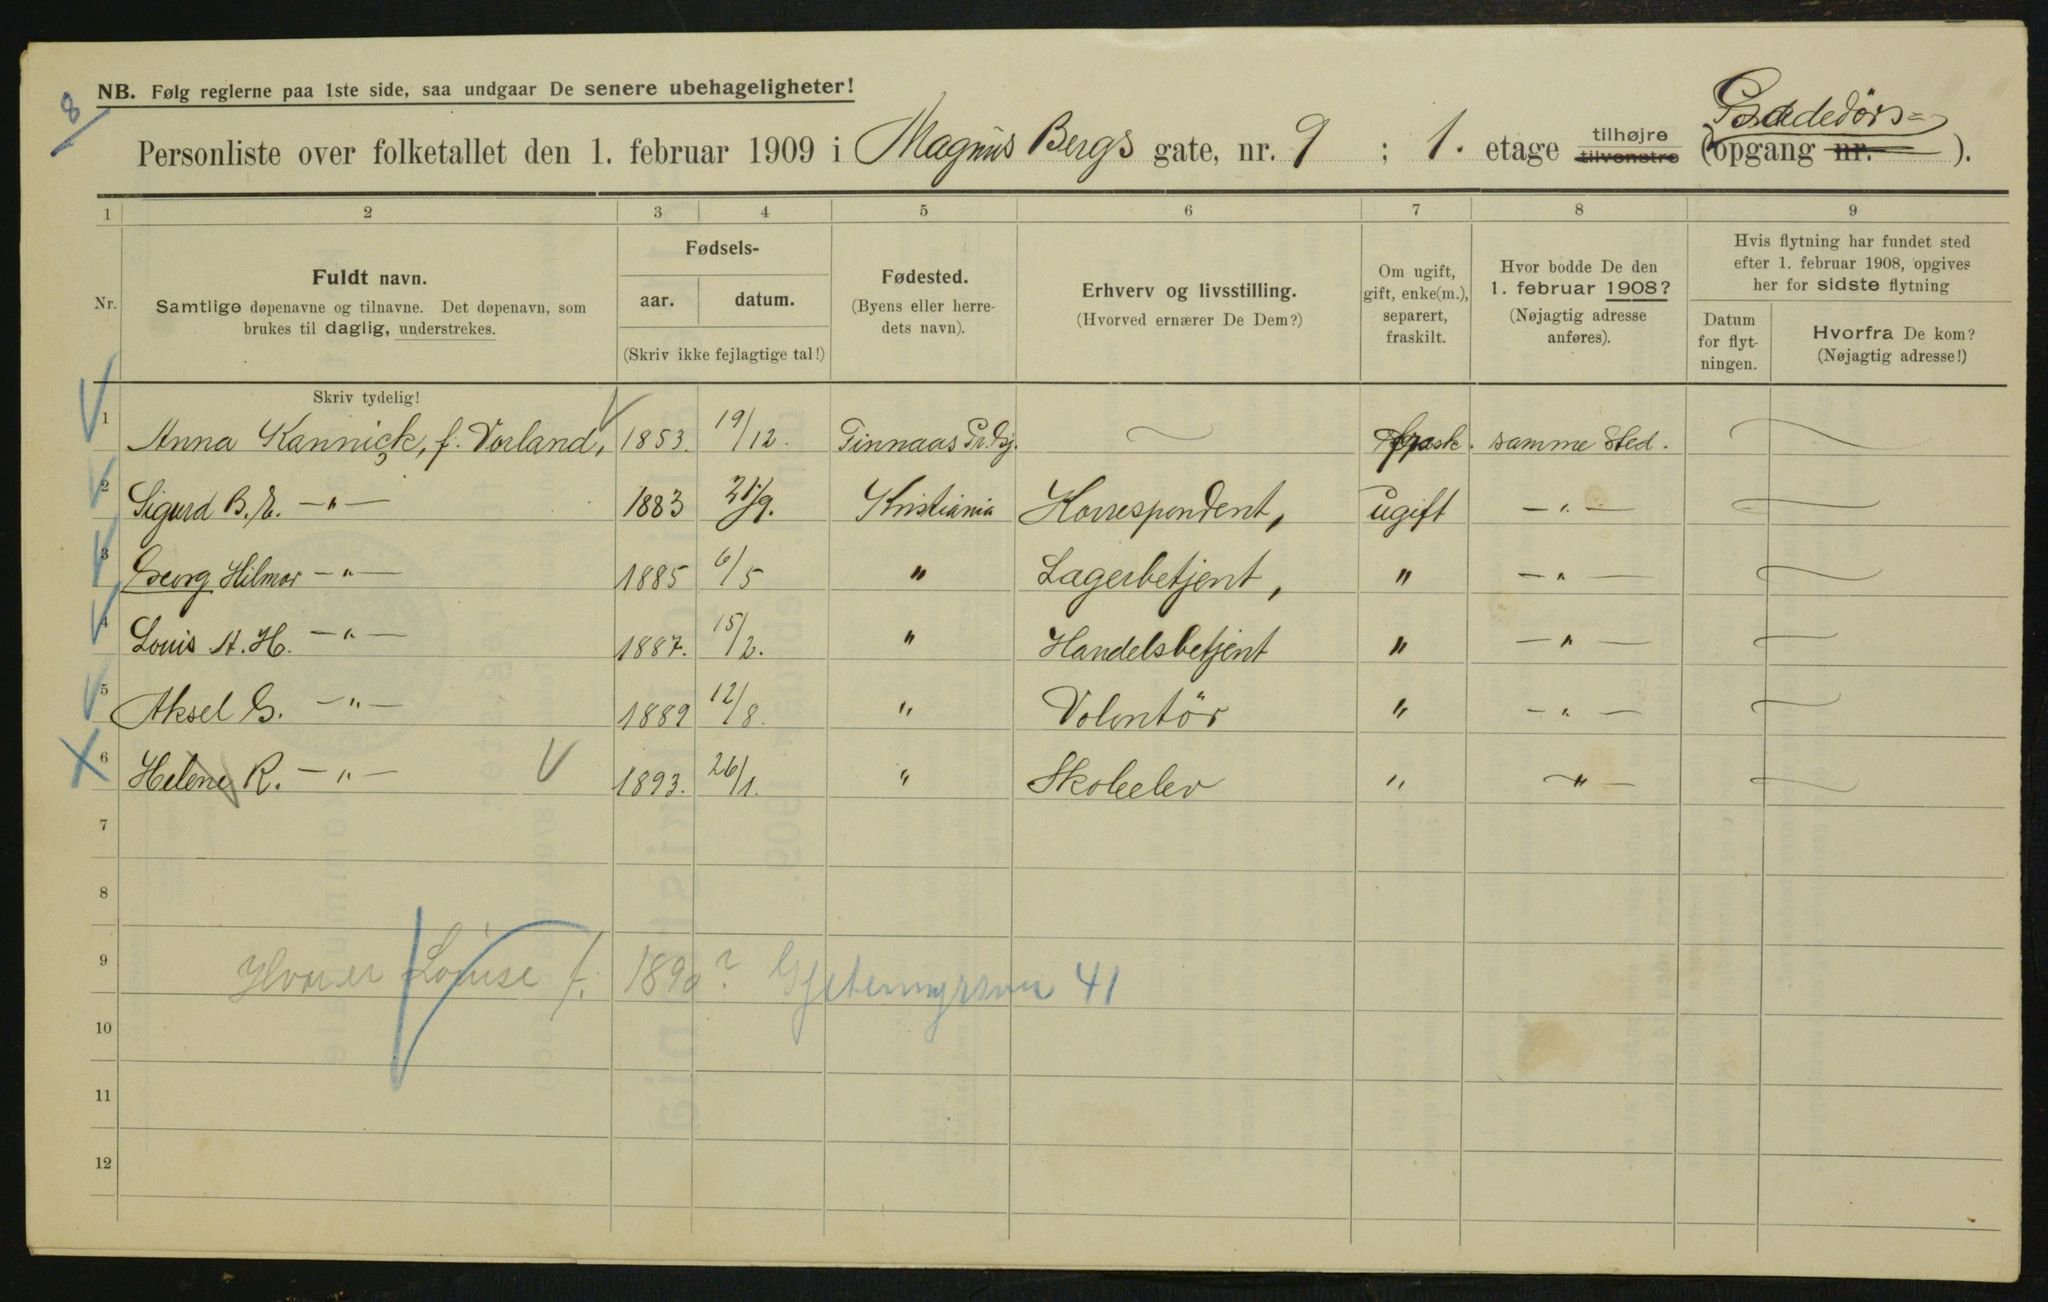 8
NB. Følg reglerne paa 1ste side, saa undgaar De senere ubehageligheter!
Personliste over folketallet den 1. februar 1909 i Magnus Bergs gate, nr. 9 ; 1. etage tilhøjre tilvenstre (Gadedørs= opgang nr. ).
1 2 3 4 5 6 7 8 9
Nr.
Fuldt navn.
Samtlige døpenavne og tilnavne. Det døpenavn, som
brukes til daglig, understrekes.
Fødsels-
aar. datum.
(Skriv ikke fejlagtige tal!)
Fødested.
(Byens eller herre-
dets navn).
Erhverv og livsstilling.
(Hvorved ernærer De Dem?)
Om ugift,
gift, enke(m.),
separert,
fraskilt.
Hvor bodde De den
1. februar 1908?
(Nøjagtig adresse
anføres).
Hvis flytning har fundet sted
efter 1. februar 1908, opgives
her for sidste flytning
Datum
for flyt-
ningen.
Hvorfra De kom?
(Nøjagtig adresse!)
Skriv tydelig!
1 Anna Kannick, f. Vorland, 1853. 19/12. Tinnaas Prgj. — frask. samme sted. —
2 Sigurd B. E. —"— 1883 21/9. Kristiania Korrespondent, ugift —"— —
3 Georg Hilmar —"— 1885 6/5 " Lagerbetjent, " —"— —
4 Louis A. H. —"— 1887. 15/2. " Handelsbetjent " —"— —
5 Aksel G. —"— 1889 12/8. " Volontör " —"— —
6 Helene R. —"— 1893. 26/1. " Skoleelev " —"— —
7
8
9 Hvor er Louise f. 1890? Gjetemyrsvn 41
10
11
12